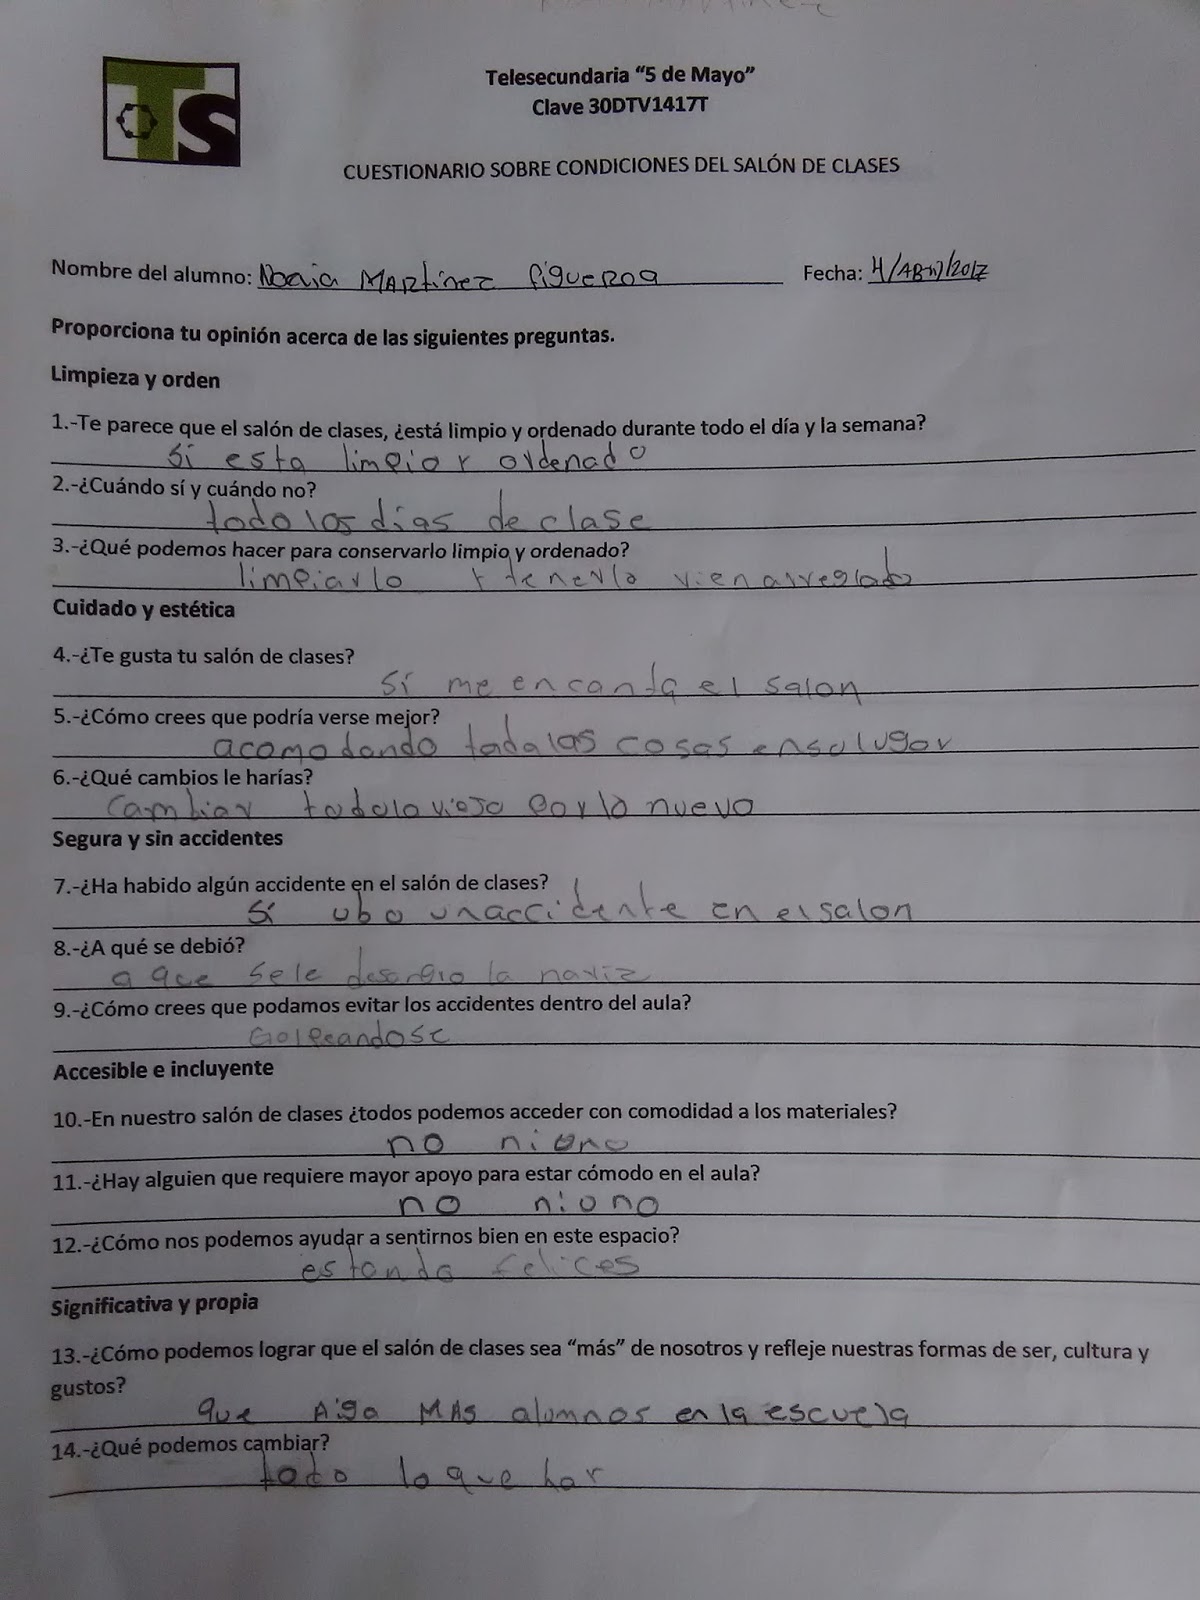 TS
Telesecundaria “5 de Mayo”
Clave 30DTV1417T
CUESTIONARIO SOBRE CONDICIONES DEL SALÓN DE CLASES
Nombre del alumno: MARtinez figueroa Fecha: 4/ABril/2017
Proporciona tu opinión acerca de las siguientes preguntas.
Limpieza y orden
1.-Te parece que el salón de clases, ¿está limpio y ordenado durante todo el día y la semana?
Si esta limpio y ordenado
2.-¿Cuándo sí y cuándo no?
todo los dias de clase
3.-¿Qué podemos hacer para conservarlo limpio y ordenado?
limpiarlo y tenerlo vien arreglado
Cuidado y estética
4.-¿Te gusta tu salón de clases?
Si me encanta el salon
5.-¿Cómo crees que podría verse mejor?
acomodando toda las cosas en su lugar
6.-¿Qué cambios le harías?
Cambiar todo lo viejo por lo nuevo
Segura y sin accidentes
7.-¿Ha habido algún accidente en el salón de clases?
Si ubo un accidente en el salon
8.-¿A qué se debió?
a que se le la nariz
9.-¿Cómo crees que podamos evitar los accidentes dentro del aula?
Golpeandose
Accesible e incluyente
10.-En nuestro salón de clases ¿todos podemos acceder con comodidad a los materiales?
no niuno
11.-¿Hay alguien que requiere mayor apoyo para estar cómodo en el aula?
no niuno
12.-¿Cómo nos podemos ayudar a sentirnos bien en este espacio?
estando felices
Significativa y propia
13.-¿Cómo podemos lograr que el salón de clases sea “más” de nosotros y refleje nuestras formas de ser, cultura y
gustos?
que Aiga MAS alumnos en la escuela
14.-¿Qué podemos cambiar?
todo lo que hay